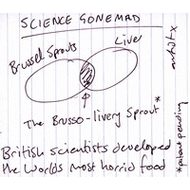 SCIENCE GONE MAD
Brussel Sprouts
Liver
The Brusso-livery Sprout*
British scientists developed
the worlds most horrid food
*patent pending